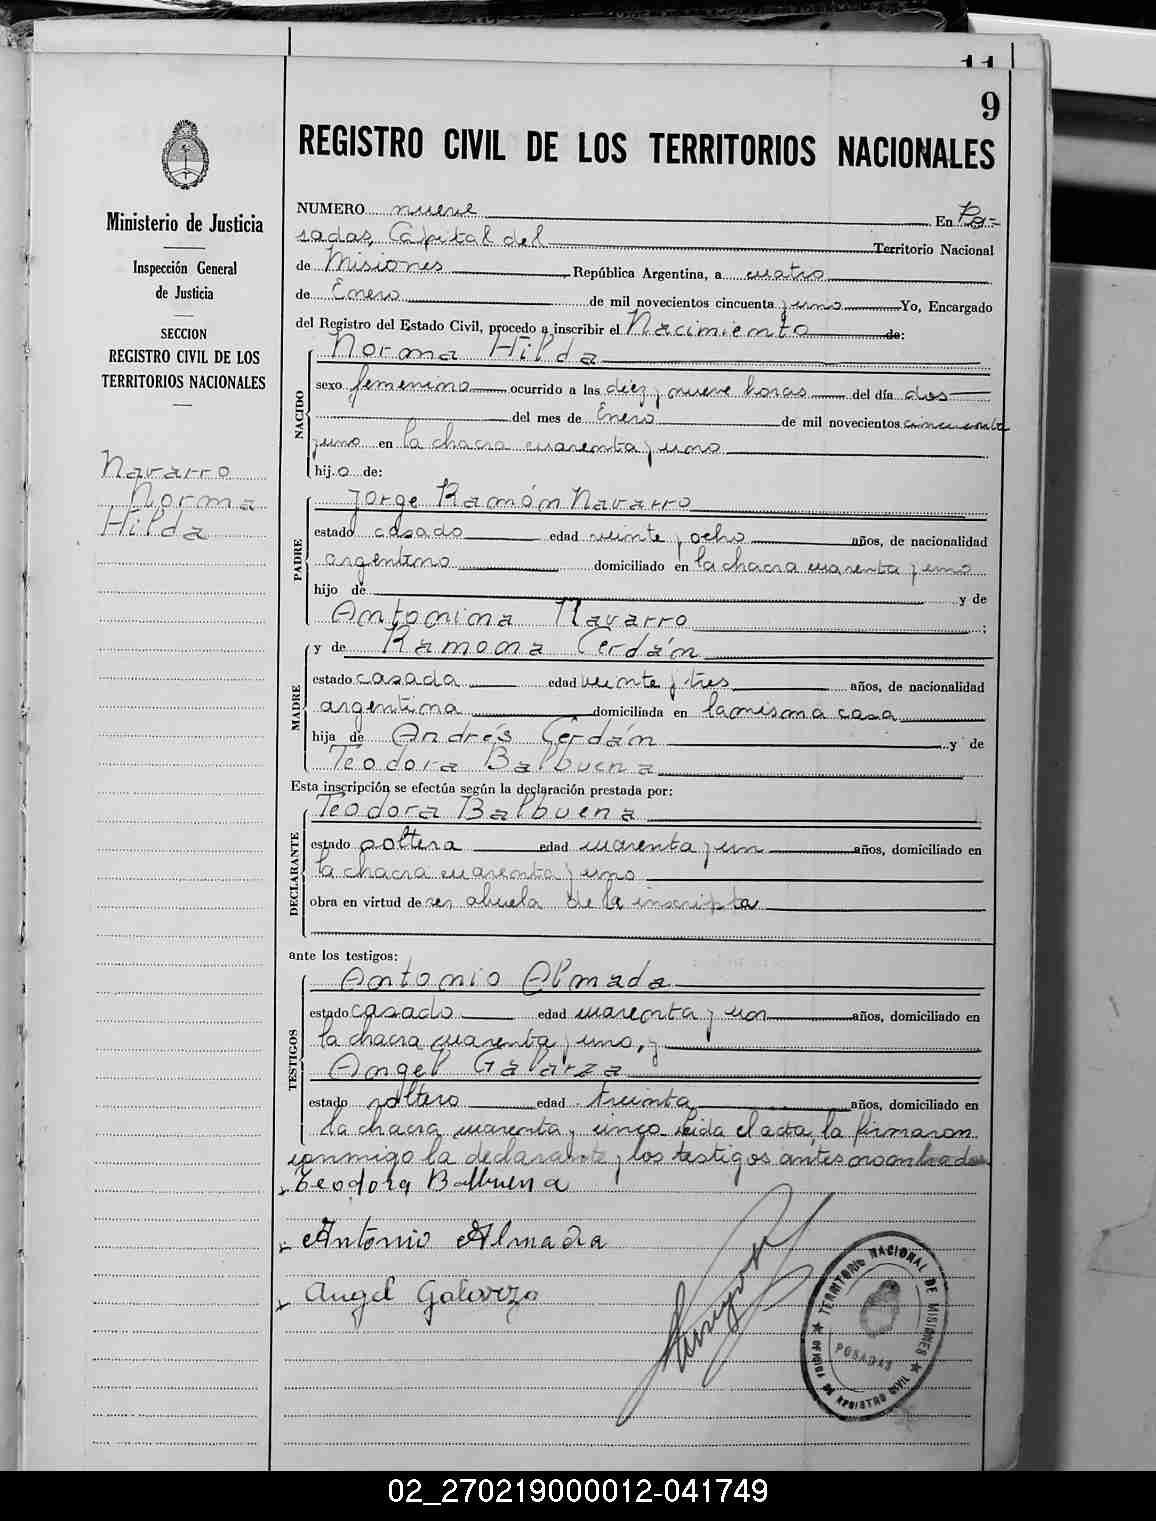 11
9
REGISTRO CIVIL DE LOS TERRITORIOS NACIONALES
Ministerio de Justicia
Inspección General
de Justicia
SECCION
REGISTRO CIVIL DE LOS
TERRITORIOS NACIONALES
Navarro
Norma
Hilda
NUMERO nueve En Po=
sadas, Capital del Territorio Nacional
de Misiones República Argentina, a cuatro
de Enero de mil novecientos cincuenta y uno Yo, Encargado
del Registro del Estado Civil, procedo a inscribir el Nacimiento de:
NACIDO
Norma Hilda
sexo femenino ocurrido a las diez y nueve horas del día dos
del mes de Enero de mil novecientos cincuenta
y uno en la chacra cuarenta y uno
hijo de:
PADRE
Jorge Ramón Navarro
estado casado edad veinte y ocho años, de nacionalidad
argentino domiciliado en la chacra cuarenta y uno
hijo de y de
Antonina Navarro ;
MADRE
y de Ramona Cerdán
estado casada edad veinte y tres años, de nacionalidad
argentina domiciliada en la misma casa
hija de Andrés Cerdán y de
Teodora Balbuena
Esta inscripción se efectúa según la declaración prestada por:
DECLARANTE
Teodora Balbuena
estado soltera edad cuarenta y un años, domiciliado en
la chacra cuarenta y uno
obra en virtud de ser abuela de la inscripta
ante los testigos:
TESTIGOS
Antonio Almada
estado casado edad cuarenta y un años, domiciliado en
la chacra cuarenta y uno, y
Angel Galarza
estado soltero edad treinta años, domiciliado en
la chacra cuarenta y cinco Leida el acta, la firmaron
conmigo la declarante y los testigos antes nombrados
Teodora Balbuena
Antonio Almada
Angel Galarza
TERRITORIO NACIONAL DE MISIONES
POSADAS
OFICINA DE REGISTRO CIVIL
02_270219000012-041749